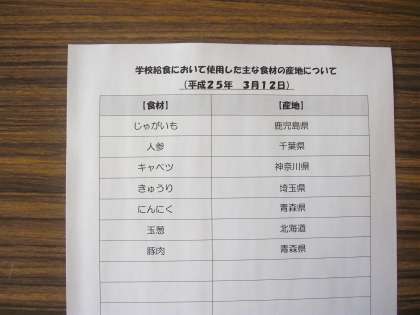 学校給食において使用した主な食材の産地について
（平成２５年　３月１２日）
【食材】　【産地】
じゃがいも　鹿児島県
人参　千葉県
キャベツ　神奈川県
きゅうり　埼玉県
にんにく　青森県
玉葱　北海道
豚肉　青森県